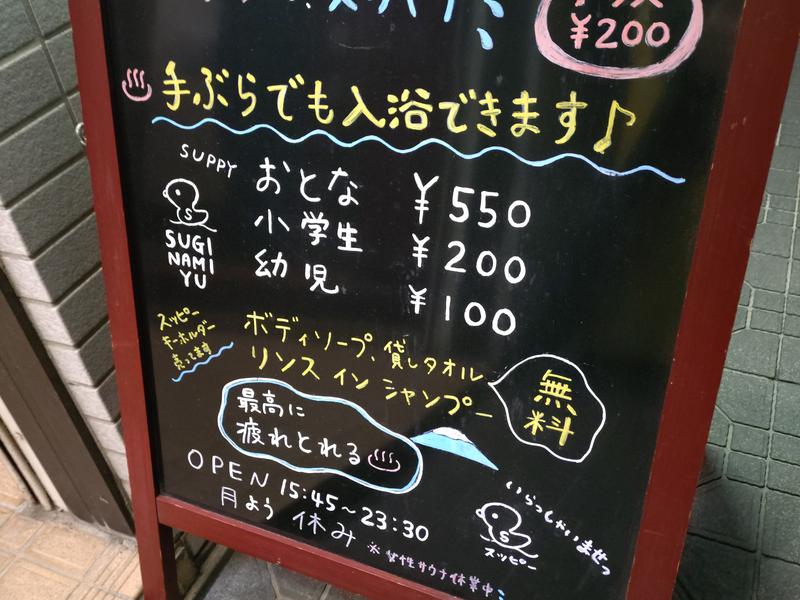 ¥200
手ぶらでも入浴できます♪
SUPPY
SUGI
NAMI
YU
おとな ¥550
小学生 ¥200
幼児 ¥100
スッピー
キーホルダー
売ってます
ボディソープ、貸しタオル
リンス イン シャンプー
無料
最高に
疲れとれる♨
OPEN 15:45～23:30
月よう 休み
いらっしゃいませっ
スッピー
※女性サウナ休業中